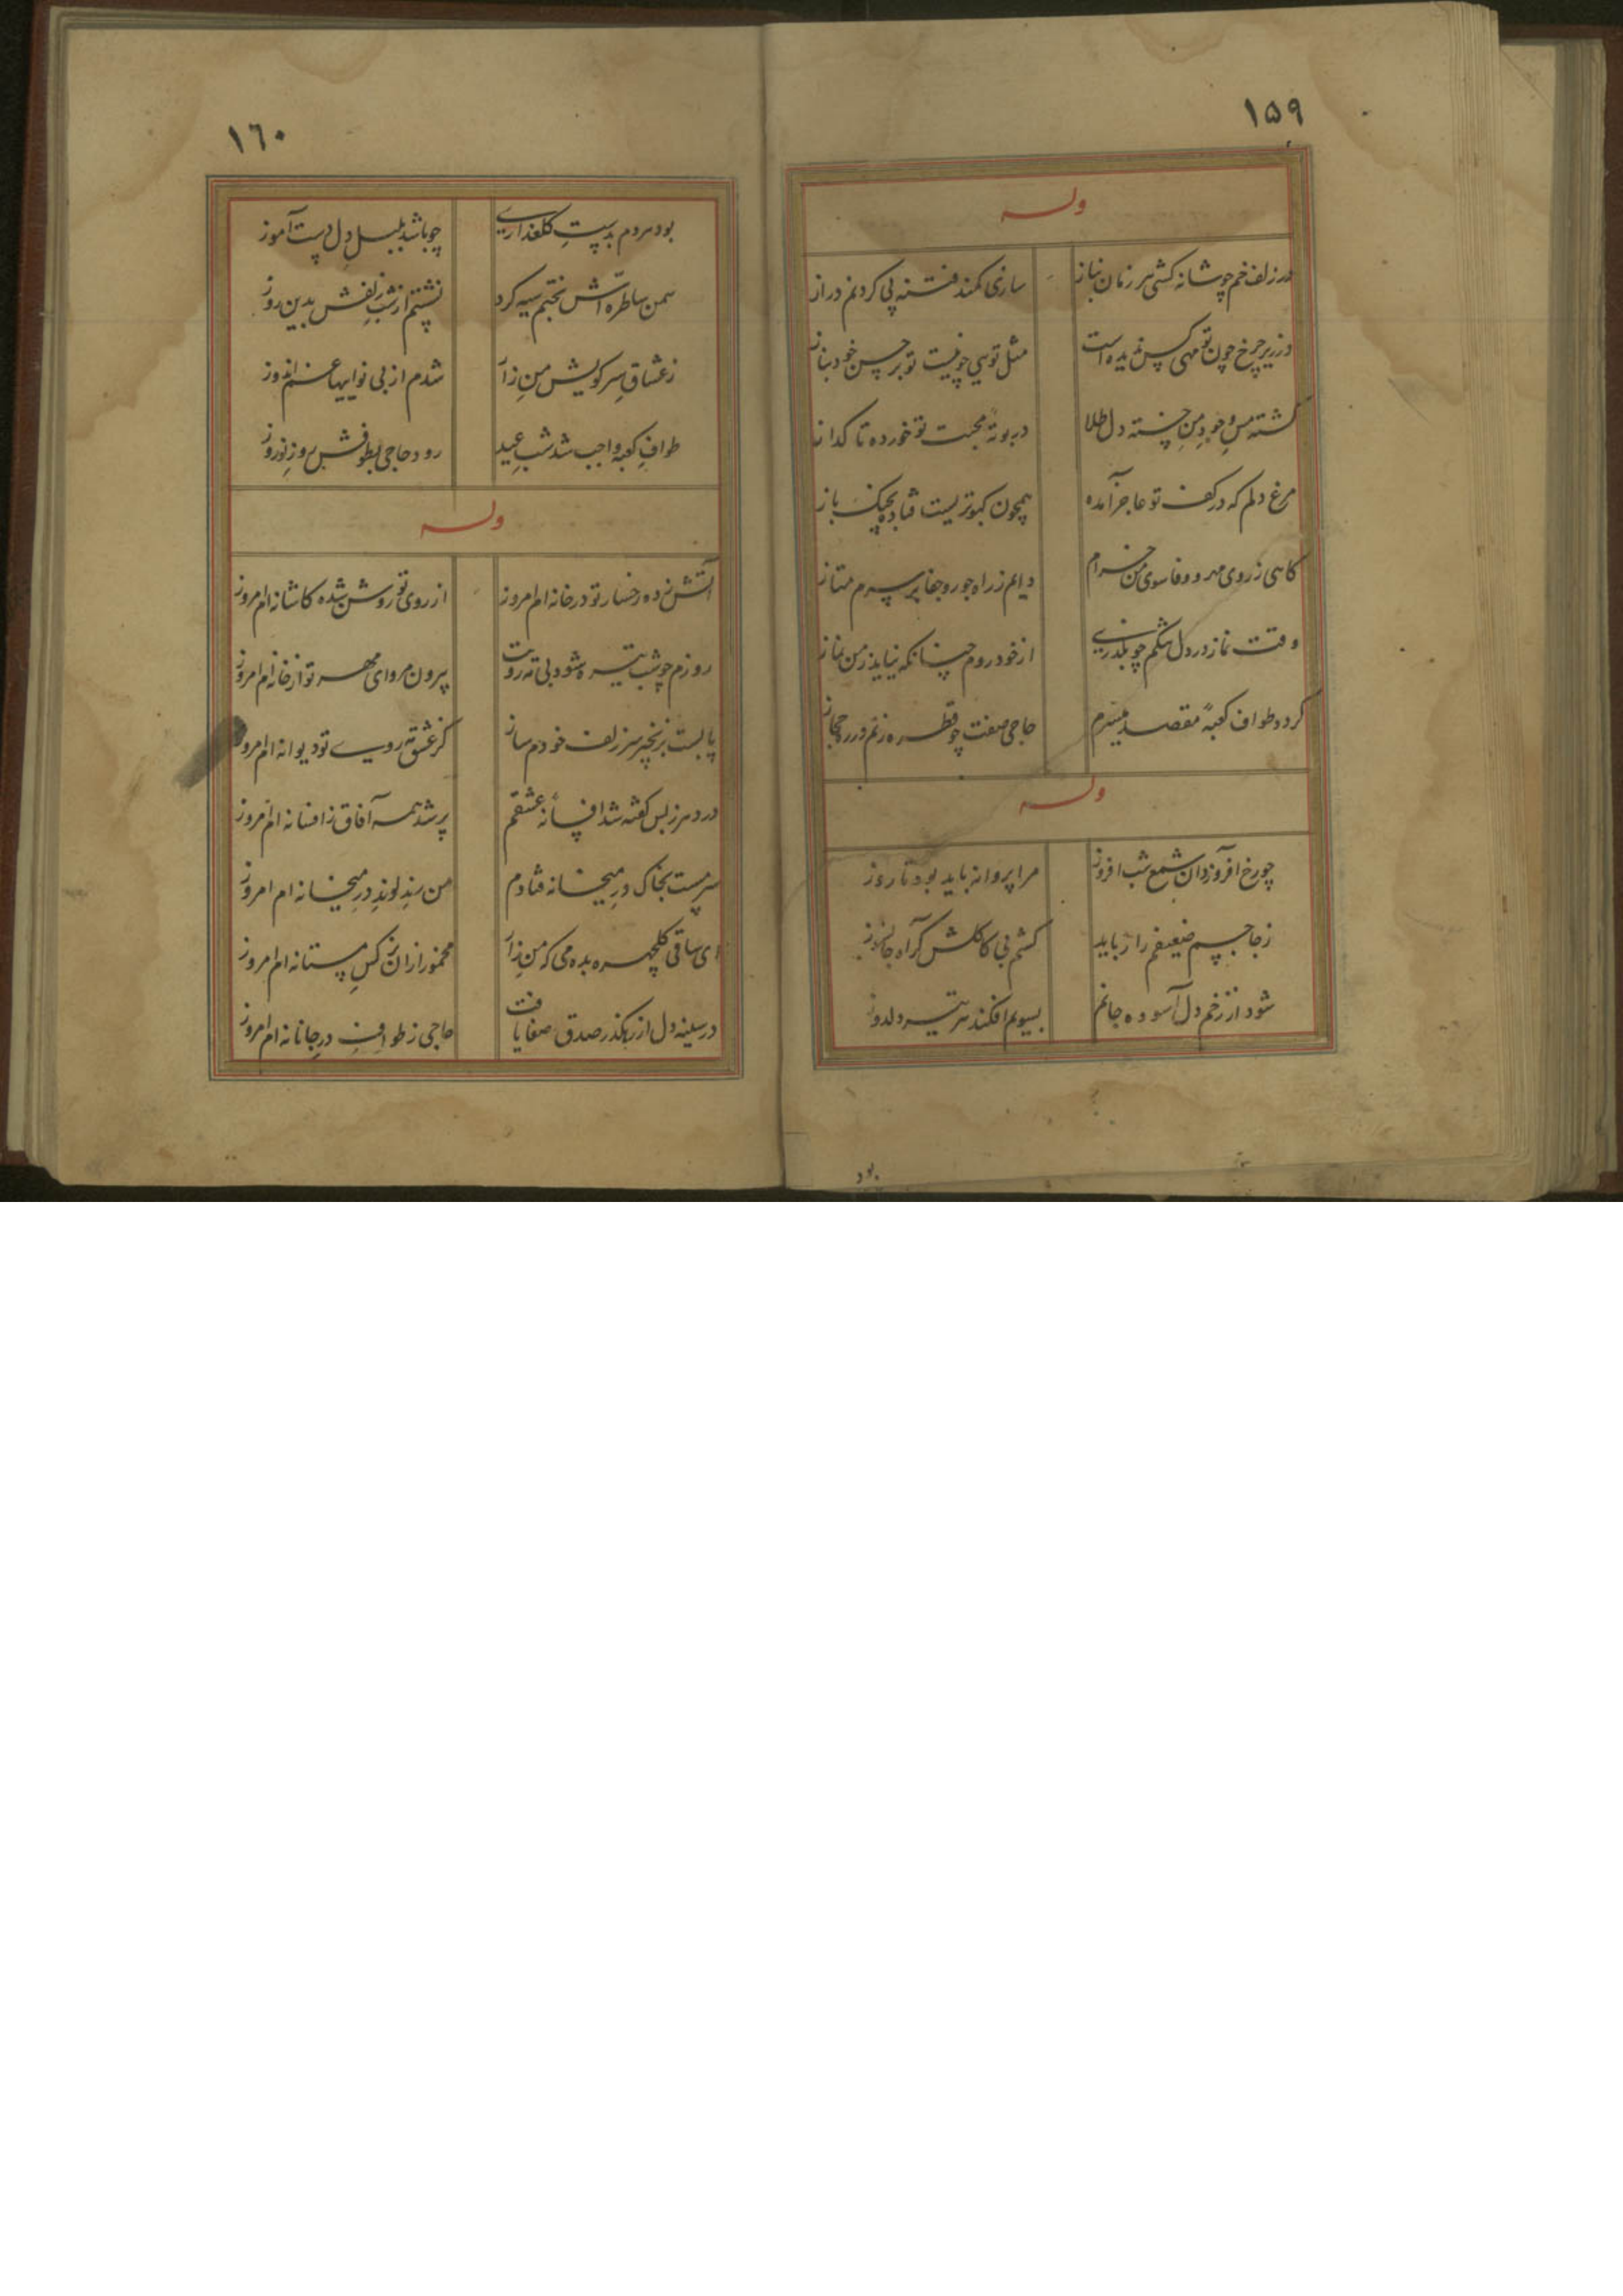 ١٥٩
وله
در زلف خم چو شانه کشی هر زمان بناز
سازی کمند فتنه پی کردنم دراز
در زیر چرخ چون تو مهی کس ندیده است
مثل تویی چو نیست تو بر حسن خود بناز
کشته مس وجود من خسته دل طلا
در بوته محبت تو خورده تا کداز
مرغ دلم که در کف تو عاجز آمده
همچون کبوتریست فتاده بچنک باز
کاهی ز روی مهر و وفا سوی من خرام
دایم ز راه جور و جفا بر سرم متاز
وقت نماز در دل تنکم چو بکذری
از خود روم چنانکه نیاید ز من نماز
کرد و طواف کعبهٔ مقصد میسرم
حاجی صفت چو قطره زنم در ره حجاز
وله
چو رخ افروزد آن شمع شب افروز
مرا پروانه باید بود تا روز
ز جا جسم ضعیفم را رباید
کشم بی کاکلش کر آه جانسوز
شود از زخم دل آسوده جانم
بسویم افکند هر تیر دلدوز
بود
١٦٠
بود هر دم بدست کلعذاری
چو باشد بلبل دل دست آموز
سمن سا طره اش بختم سیه کرد
نشستم از شب زلفش بدین روز
ز عشاق سر کویش من زار
شدم از بی نواییها غم اندوز
طواف کعبه واجب شد شب عید
رود حاجی بطوفش روز نوروز
وله
آتش زده رخسار تو در خانه ام امروز
از روی تو روشن شده کاشانه ام امروز
روزم چو شب تیره شود بی مه رویت
بیرون مرو ای مهر تو از خانه ام امروز
پا بست بزنجیر سر زلف خودم ساز
کز عشق روی تو دیوانه ام امروز
در دهر ز بس کفته شد افسانه عشقم
پر شد همه آفاق ز افسانه ام امروز
سرمست بخاک در میخانه فتادم
من رند لوند در میخانه ام امروز
ای ساقی کلچهره بده می که من زار
مخمور از ان نرکس مستانه ام امروز
در سینه دل از رهکذر صدق صفا یافت
حاجی ز طواف در جانانه ام امروز